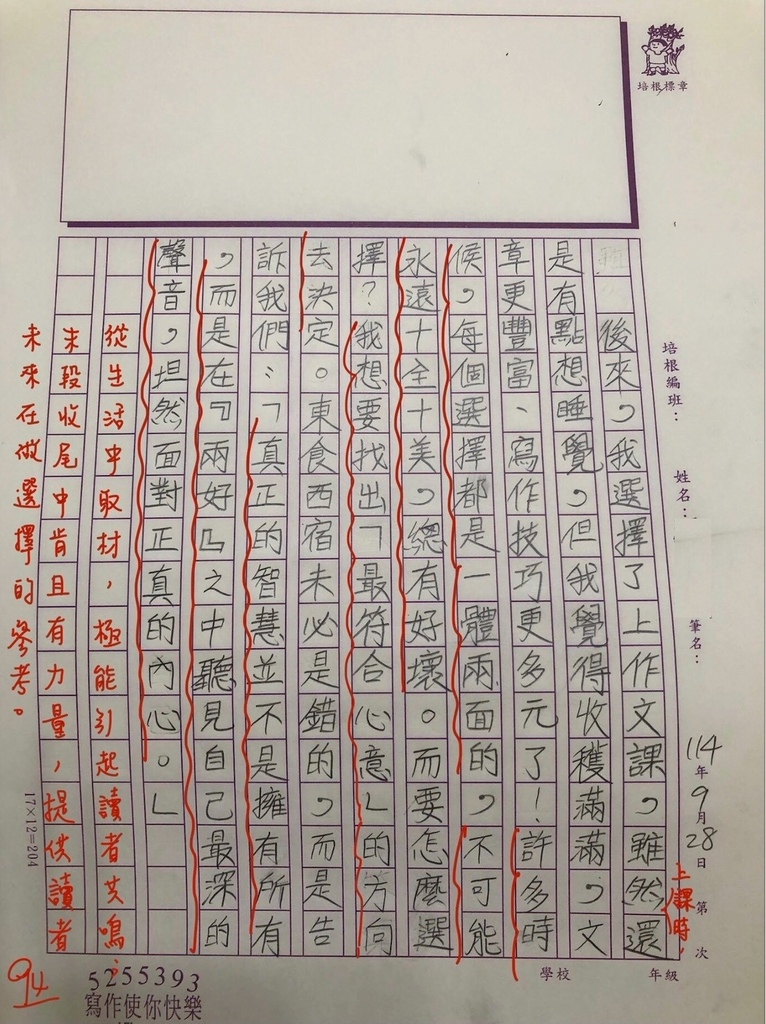 培根標章
培根編班：
姓名：
筆名：
114年9月28日
第 次
上課時，
後來，我選擇了上作文課，雖然還
是有點想睡覺，但我覺得收穫滿滿，文
章更豐富、寫作技巧更多元了！許多時
候，每個選擇都是一體兩面的，不可能
永遠十全十美，總有好壞。而要怎麼選
擇？我想要找出「最符合心意」的方向
去決定。東食西宿未必是錯的，而是告
訴我們：「真正的智慧並不是擁有所有
，而是在『兩好』之中聽見自己最深的
聲音，坦然面對正真的內心。」
從生活中取材，極能引起讀者共鳴；
末段收尾中肯且有力量，提供讀者
未來在做選擇的參考。
17×12=204
94
學校
年級
5255393
寫作使你快樂